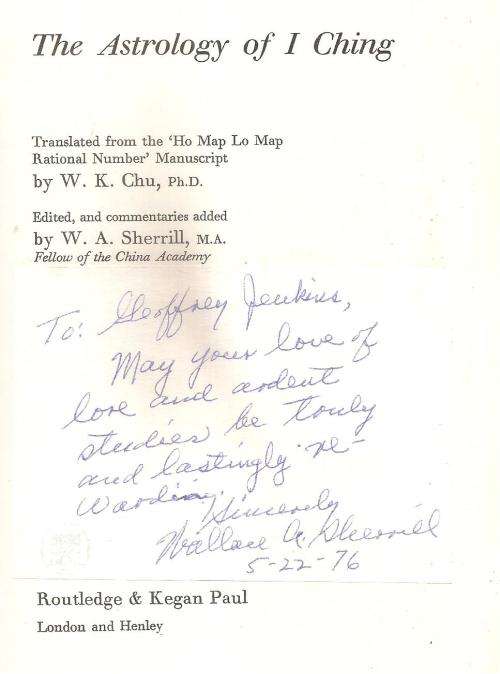 The Astrology of I Ching
Translated from the 'Ho Map Lo Map
Rational Number' Manuscript
by W. K. Chu, Ph.D.
Edited, and commentaries added
by W. A. Sherrill, M.A.
Fellow of the China Academy
To: Geoffrey Jenkins,
May your love of
lore and ardent
studies be truly
and lastingly re-
warding.
Sincerely
Wallace A. Sherrill
5-22-76
Routledge & Kegan Paul
London and Henley